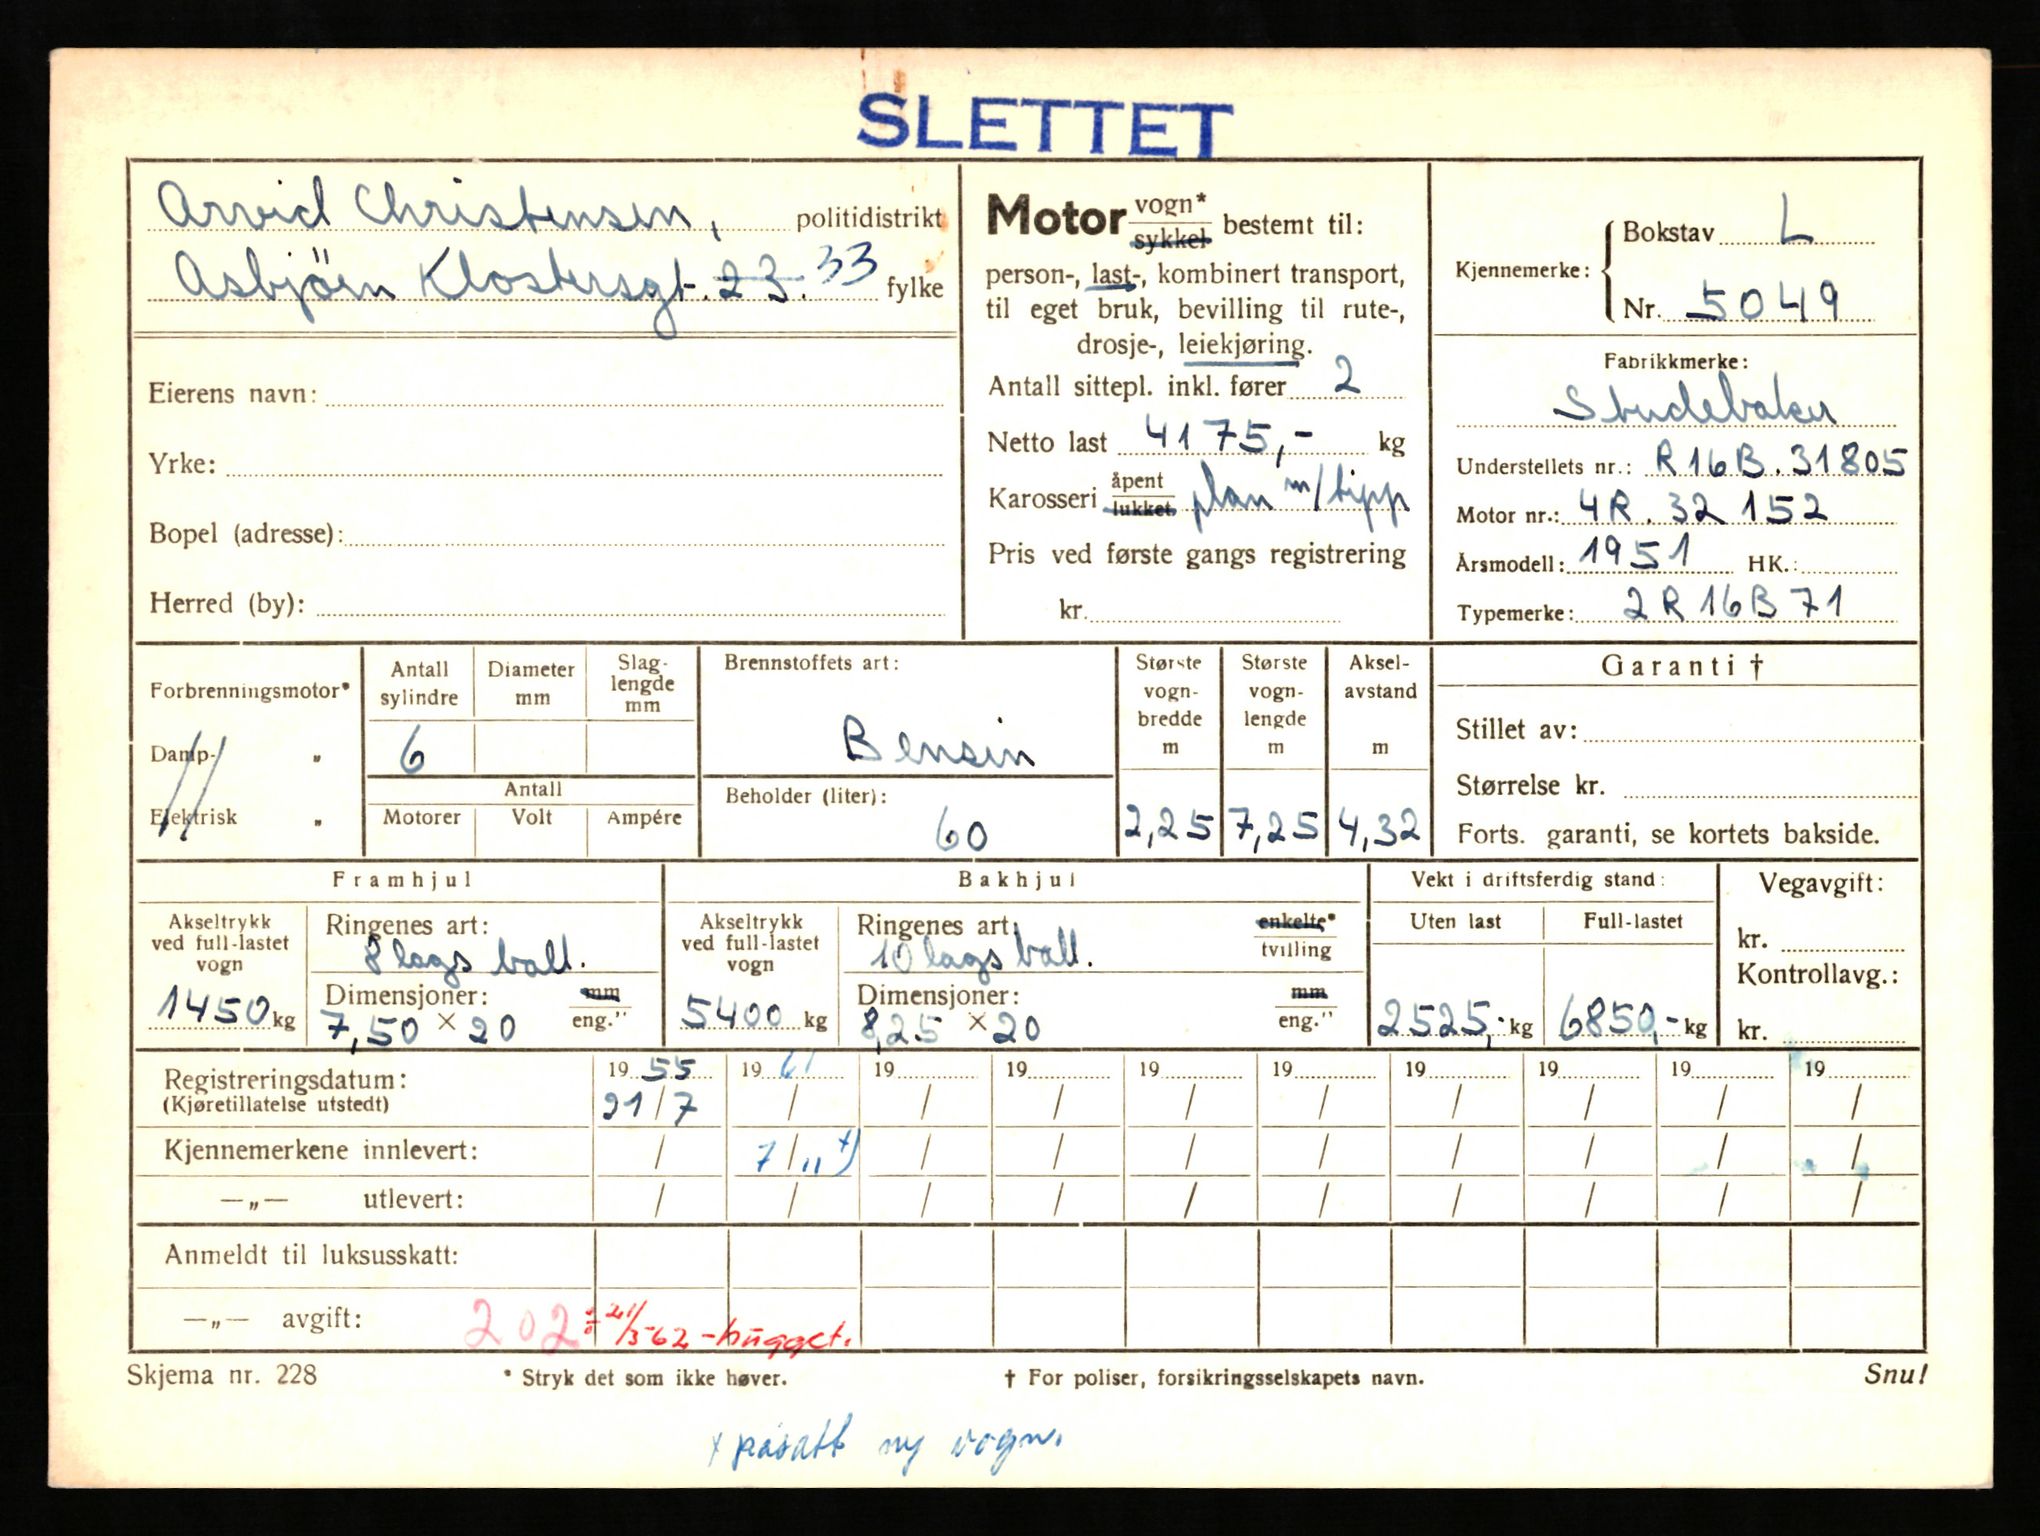 SLETTET
Arvid Christensen, politidistrikt
Asbjörn Klostersgt. 23. 33 fylke
Eierens navn:
Yrke:
Bopel (adresse):
Herred (by):
Motor vogn* sykkel bestemt til:
person-, last-, kombinert transport,
til eget bruk, bevilling til rute-,
drosje-, leiekjøring.
Antall sittepl. inkl. fører 2
Netto last 4175,- kg
Karosseri åpent lukket plan m/tipp
Pris ved første gangs registrering
kr.
Kjennemerke: Bokstav L
Nr. 5049
Fabrikkmerke:
Studebaker
Understellets nr.: R16B.31805
Motor nr.: 4R.32152
Årsmodell: 1951 HK.:
Typemerke: 2R16B71
Forbrenningsmotor*
Damp- "
Elektrisk "
Antall sylindre
6
Diameter mm
Slag-lengde mm
Antall
Motorer Volt Ampére
Brennstoffets art:
Bensin
Beholder (liter):
60
Største vogn-bredde m
2,25
Største vogn-lengde m
7,25
Aksel-avstand m
4,32
Garanti †
Stillet av:
Størrelse kr.
Forts. garanti, se kortets bakside.
Framhjul
Akseltrykk ved full-lastet vogn
1450 kg
Ringenes art:
8 lags ball.
Dimensjoner: mm eng."
7,50 × 20
Bakhjul
Akseltrykk ved full-lastet vogn
5400 kg
Ringenes art: enkelte* tvilling
10 lags ball.
Dimensjoner: mm eng."
8,25 × 20
Vekt i driftsferdig stand:
Uten last Full-lastet
2525,- kg 6850,- kg
Vegavgift:
kr.
Kontrollavg.:
kr.
Registreringsdatum: 19 55 19 61 19 19 19 19 19 19 19 19
(Kjøretillatelse utstedt) 21/7 / / / / / / / / /
Kjennemerkene innlevert: / 7/11 +) / / / / / / / /
—„— utlevert: / / / / / / / / / /
Anmeldt til luksusskatt:
—„— avgift: 202 21/5-62 - hugget.
Skjema nr. 228 * Stryk det som ikke høver. † For poliser, forsikringsselskapets navn. Snu!
x påsatt ny vogn.